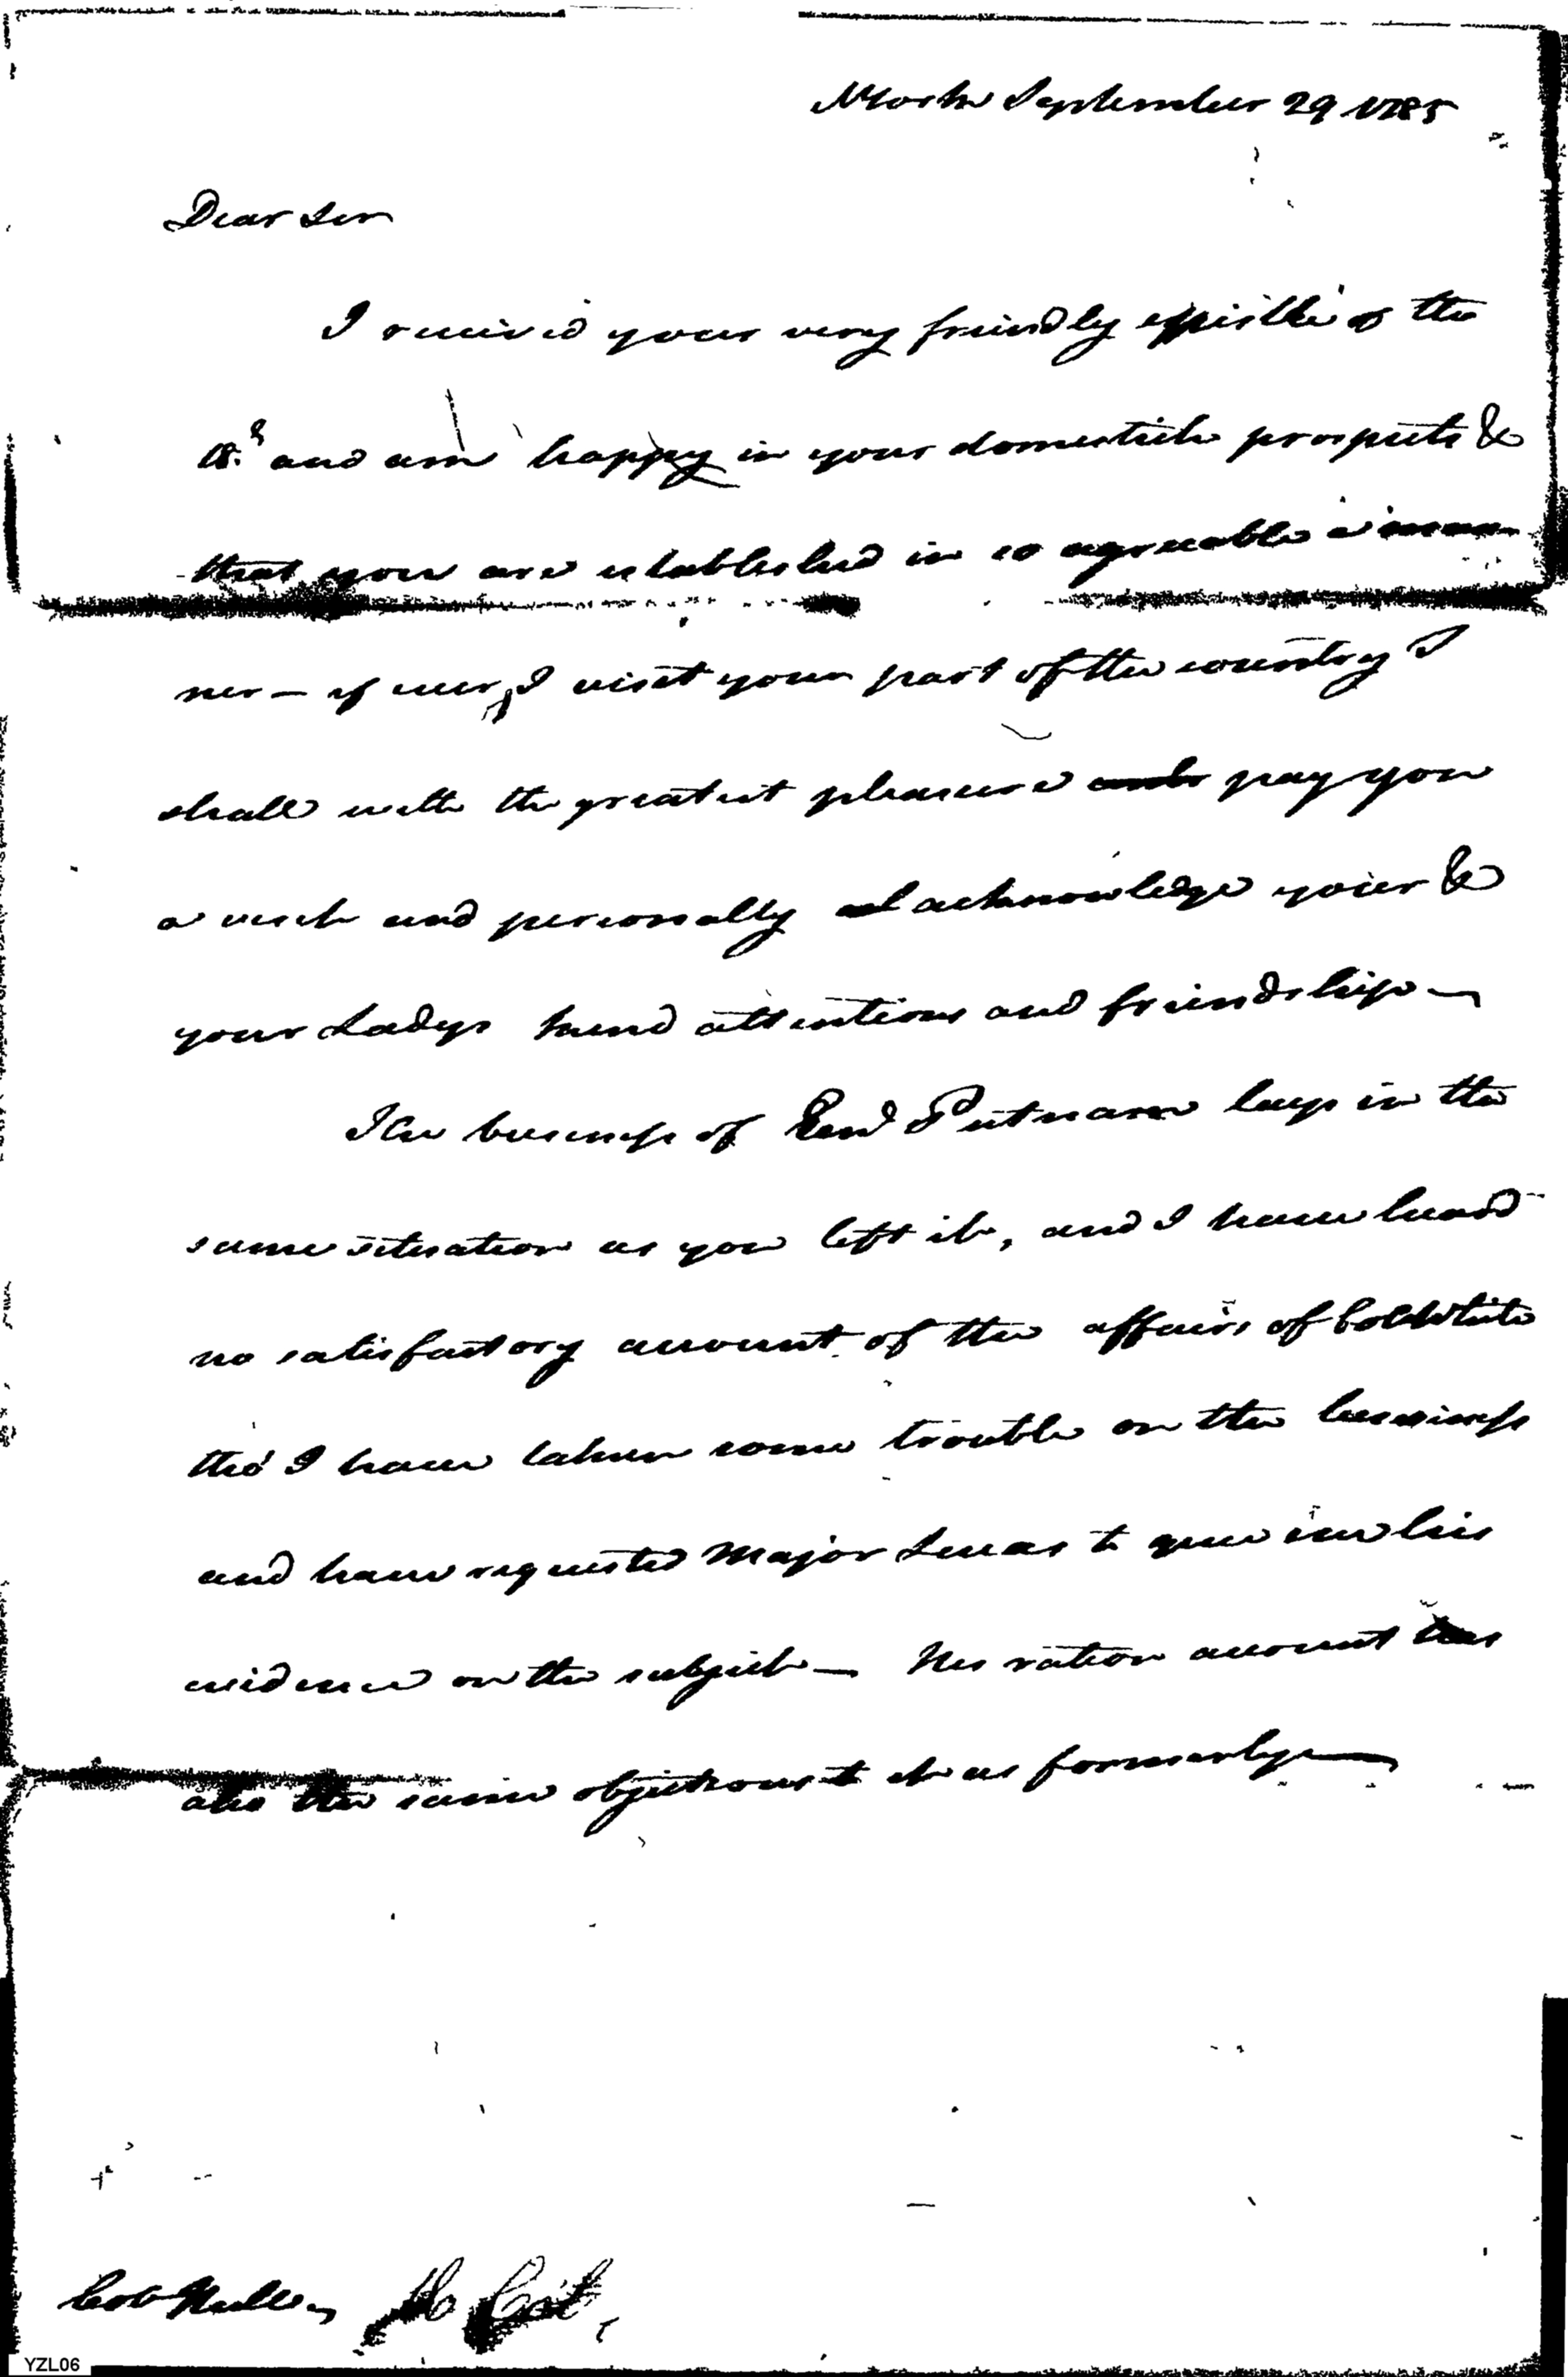 NYork September 29 1785
Dear Sir
I received your very friendly epistle of the
and am happy in your domestick prospects &
that you are established in so agreeable a man
ner — if ever I visit your part of the country I
shall with the greatest pleasure pay you
a visit and personally acknowledge your &
your Ladys kind attentions and friendship —
The business of Putnam lays in the
same situation as you left it, and I have heard
no satisfactory account of the affairs of Col White
tho' I have taken some trouble on the business
and have requested Major Lucas to give in his
evidence on the subject — His ration account has
also the same objections to it as formerly —
Col Hull
YZL06